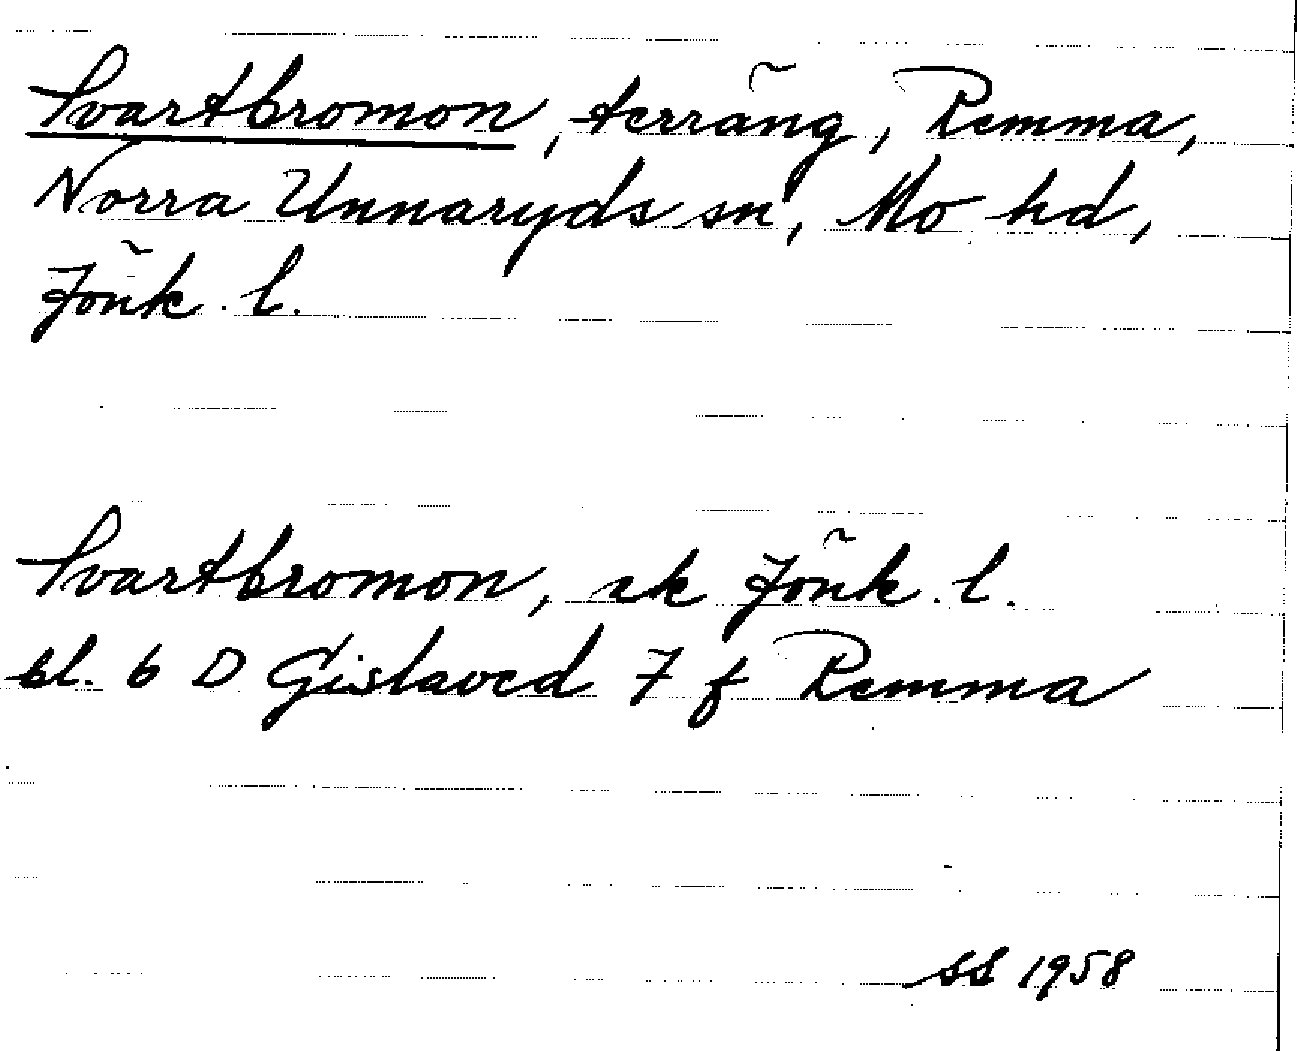 Svartbromon, terräng, Remma,
Norra Unnaryds sn, Mo hd,
Jönk. l.
Svartbromon, ek Jönk. l.
bl. 6 D Gislaved 7 f Remma
SS 1958